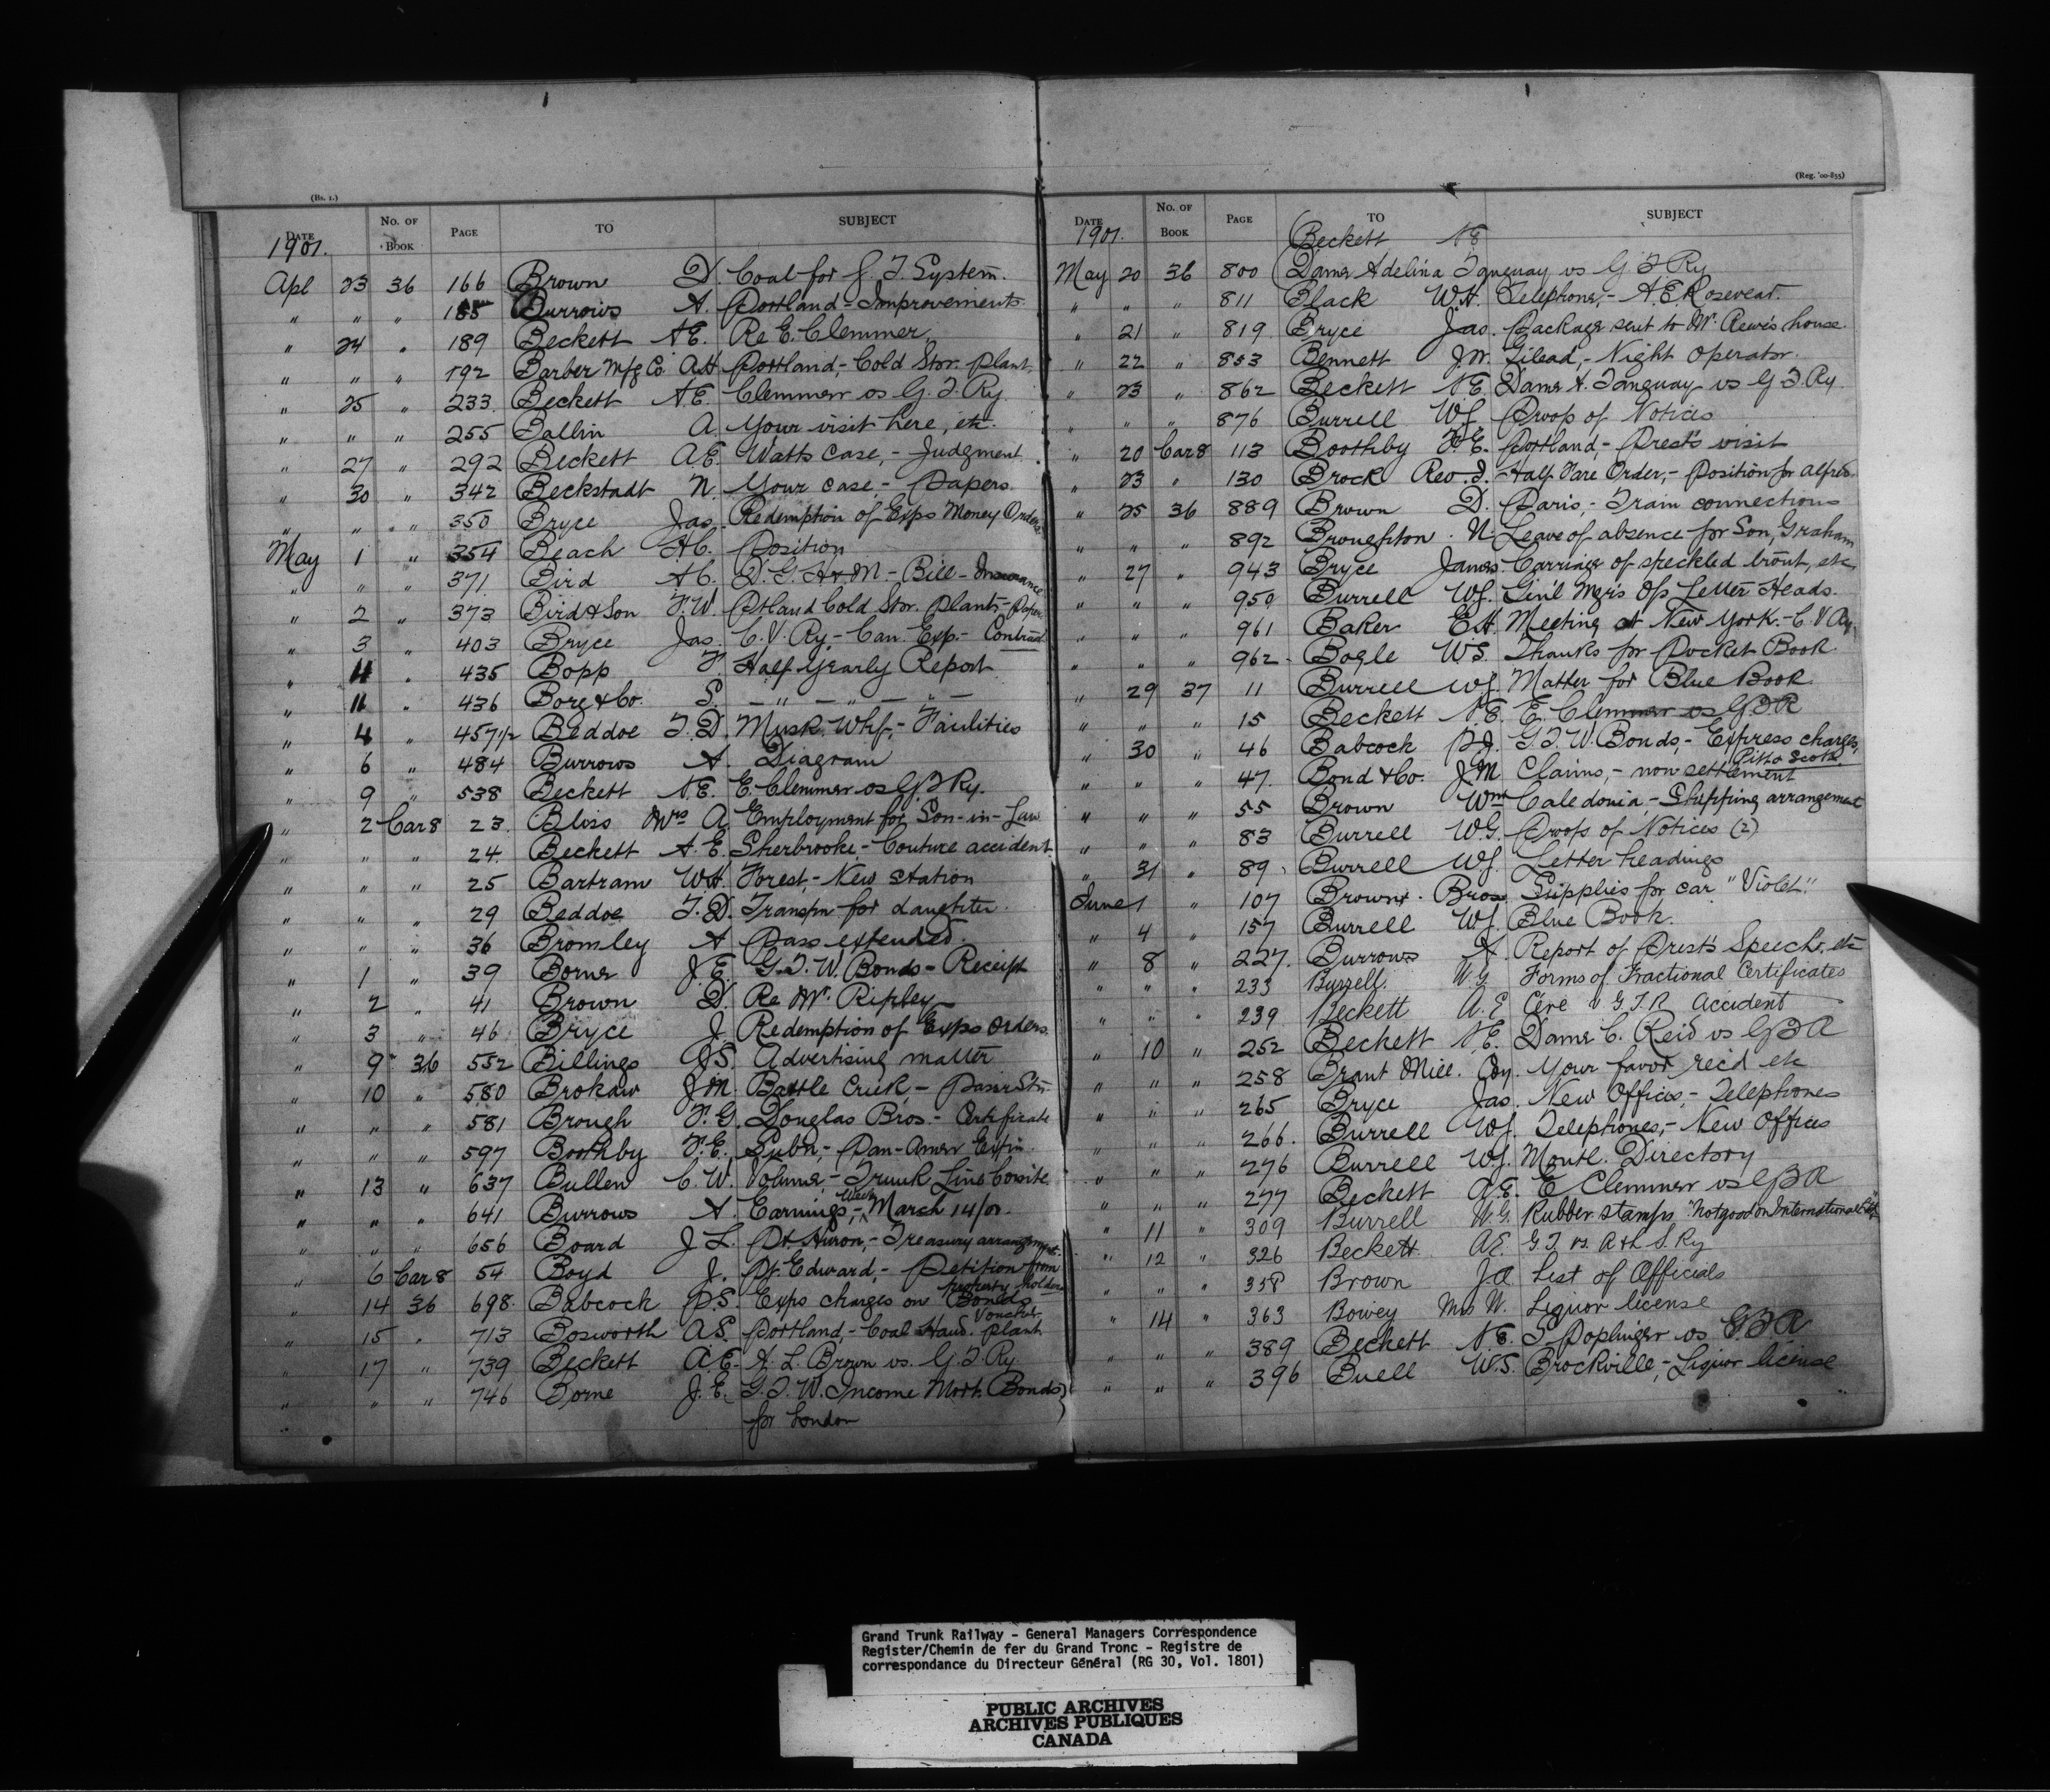 (Bs. 1.)
DATE No. OF BOOK PAGE TO SUBJECT
1901.
Apl 23 36 166 Brown D. Coal for G. T. System.
" " " 185 Burrows A. Portland - Improvements
" 24 " 189 Beckett A.E. Re E. Clemmer
" " " 192 Barber Mfg Co. A.H. Portland, - Cold Stor. Plant.
" 25 " 233 Beckett A.E. Clemmer vs G. T. Ry
" " " 255 Ballin A. Your visit here, etc.
" 27 " 292 Beckett A.E. Watts case, - Judgment
" 30 " 342 Beckstadt N. Your case, - Papers.
" " " 350 Bryce Jas. Redemption of Exps Money Orders
May 1 " 354 Beach H.C. Position
" " " 371 Bird A.C. D. G. H & M - Bill - Insurance
" 2 " 373 Bird & Son F.W. Ptland Cold Stor. Plant, - Paper
" 3 " 403 Bryce Jas. C. V. Ry. - Can. Exp. - Contract
" 4 " 435 Bopp F. Half Yearly Report
" 11 " 436 Borg & Co. S. - " - " - " -
" 4 " 457 1/2 Beddoe T. D. Musk. Whf, - Facilities
" 6 " 484 Burrows A. Diagram
" 9 " 538 Beckett A.E. E. Clemmer vs G T Ry.
" 2 Car 8 23 Bloss Mrs A. Employment for Son-in-Law
" " " 24 Beckett A. E. Sherbrooke - Couture accident
" " " 25 Bartram W.H. Forest, - New station
" " " 29 Beddoe T. D. Transpn for daughter.
" " " 36 Bromley A Pass extended.
" 1 " 39 Borne J. E. G. T. W. Bonds - Receipt
" 2 " 41 Brown D. Re Mr. Ripley
" 3 " 46 Bryce J. Redemption of Exps Orders.
" 9 36 552 Billings J.S. Advertising matter
" 10 " 580 Brokaw J.M. Battle Creek, - Passr Stn
" " " 581 Brough F. G. Douglas Bros. - Certificate
" " " 597 Boothby F. E. Lubn, - Pan-Amer Exn.
" 13 " 637 Bullen C. W. Volume - Trunk Line Comite
" " " 641 Burrows A. Earnings, - Week March 14/01.
" " " 656 Board J L. Pt Huron, - Treasury arrangement.
" 6 Car 8 54 Boyd J. Pt. Edward, - Petition from property holders
" 14 36 698 Babcock P.S. Exps charges on Bonds Voucher
" 15 " 713 Bosworth A.S. Portland, - Coal Hand. Plant
" 17 " 739 Beckett A.E. A. L. Brown vs. G. T. Ry
" " " 746 Borne J. E. G. T. W. Income Mort. Bonds
for London
(Reg. '00-855)
DATE No. OF BOOK PAGE TO SUBJECT
1901.
Beckett A E
May 20 36 800 Dame Adelina Tanguay vs G T Ry
" " " 811 Black W.H. Telephone, - A. E. Rosevear.
" 21 " 819 Bryce Jas. Package sent to Mr. Reeve's house.
" 22 " 853 Bennett J.W. Gilead, - Night Operator.
" 23 " 862 Beckett A.E. Dame A. Tanguay vs G T. Ry.
" " " 876 Burrell W.G. Proof of Notices
" 20 Car 8 113 Boothby F. E. Portland, - Prest's visit
" 23 " 130 Brock Rev. I. Half Fare Order, - Position for Alfred.
" 25 36 889 Brown D. Paris, - Train connections
" " " 892 Broughton N. Leave of absence for Son, Graham
" 27 " 943 Bryce James Carriage of speckled trout, etc
" " " 950 Burrell W.G. Gen'l Mgr's Ofs Letter Heads.
" " " 961 Baker E.H. Meeting at New York. - C V Ry.
" " " 962 Bogle W.S. Thanks for Pocket Book.
" 29 37 11 Burrell W.G. Matter for Blue Book
" " " 15 Beckett A. E. E. Clemmer vs G T R
" 30 " 46 Babcock P.S. G. T. W. Bonds, - Express charges,
" " " 47 Bond & Co. J.M. Claims, - non settlement Pitto Scott
" " " 55 Brown Wm Caledonia, - Shipping arrangement
" " " 83 Burrell W.G. Proofs of Notices (2)
" 31 " 89 Burrell W.G. Letter headings
June 1 " 107 Brown Bros. Supplies for car "Violet."
" 4 " 157 Burrell W.G. Blue Book.
" 8 " 227 Burrows A. Report of Prest's Speech, etc
" " " 233 Burrell W.G. Forms of Fractional Certificates
" " " 239 Beckett A. E Céré v G.T.R accident
" 10 " 252 Beckett A.E. Dame C. Reid vs G T R
" " " 258 Brant Mill. Coy. Your favor rec'd etc
" " " 265 Bryce Jas. New Offices, - Telephones
" " " 266 Burrell W.G. Telephones, - New Offices
" " " 276 Burrell W.G. Montl. Directory
" " " 277 Beckett A.E. E Clemmer vs G T R
" 11 " 309 Burrell W.G. Rubber stamps "Not good on International Ltd"
" 12 " 326 Beckett AE. G.T. vs. A & L S. Ry
" " " 358 Brown J.A. List of Officials
" 14 " 363 Bowey Mrs W. Liquor license
" " " 389 Beckett A.E. I Poplinger vs G T R
" " " 396 Buell W.S. Brockville, - Liquor license
Grand Trunk Railway - General Managers Correspondence
Register/Chemin de fer du Grand Tronc - Registre de
correspondance du Directeur Général (RG 30, Vol. 1801)
PUBLIC ARCHIVES
ARCHIVES PUBLIQUES
CANADA